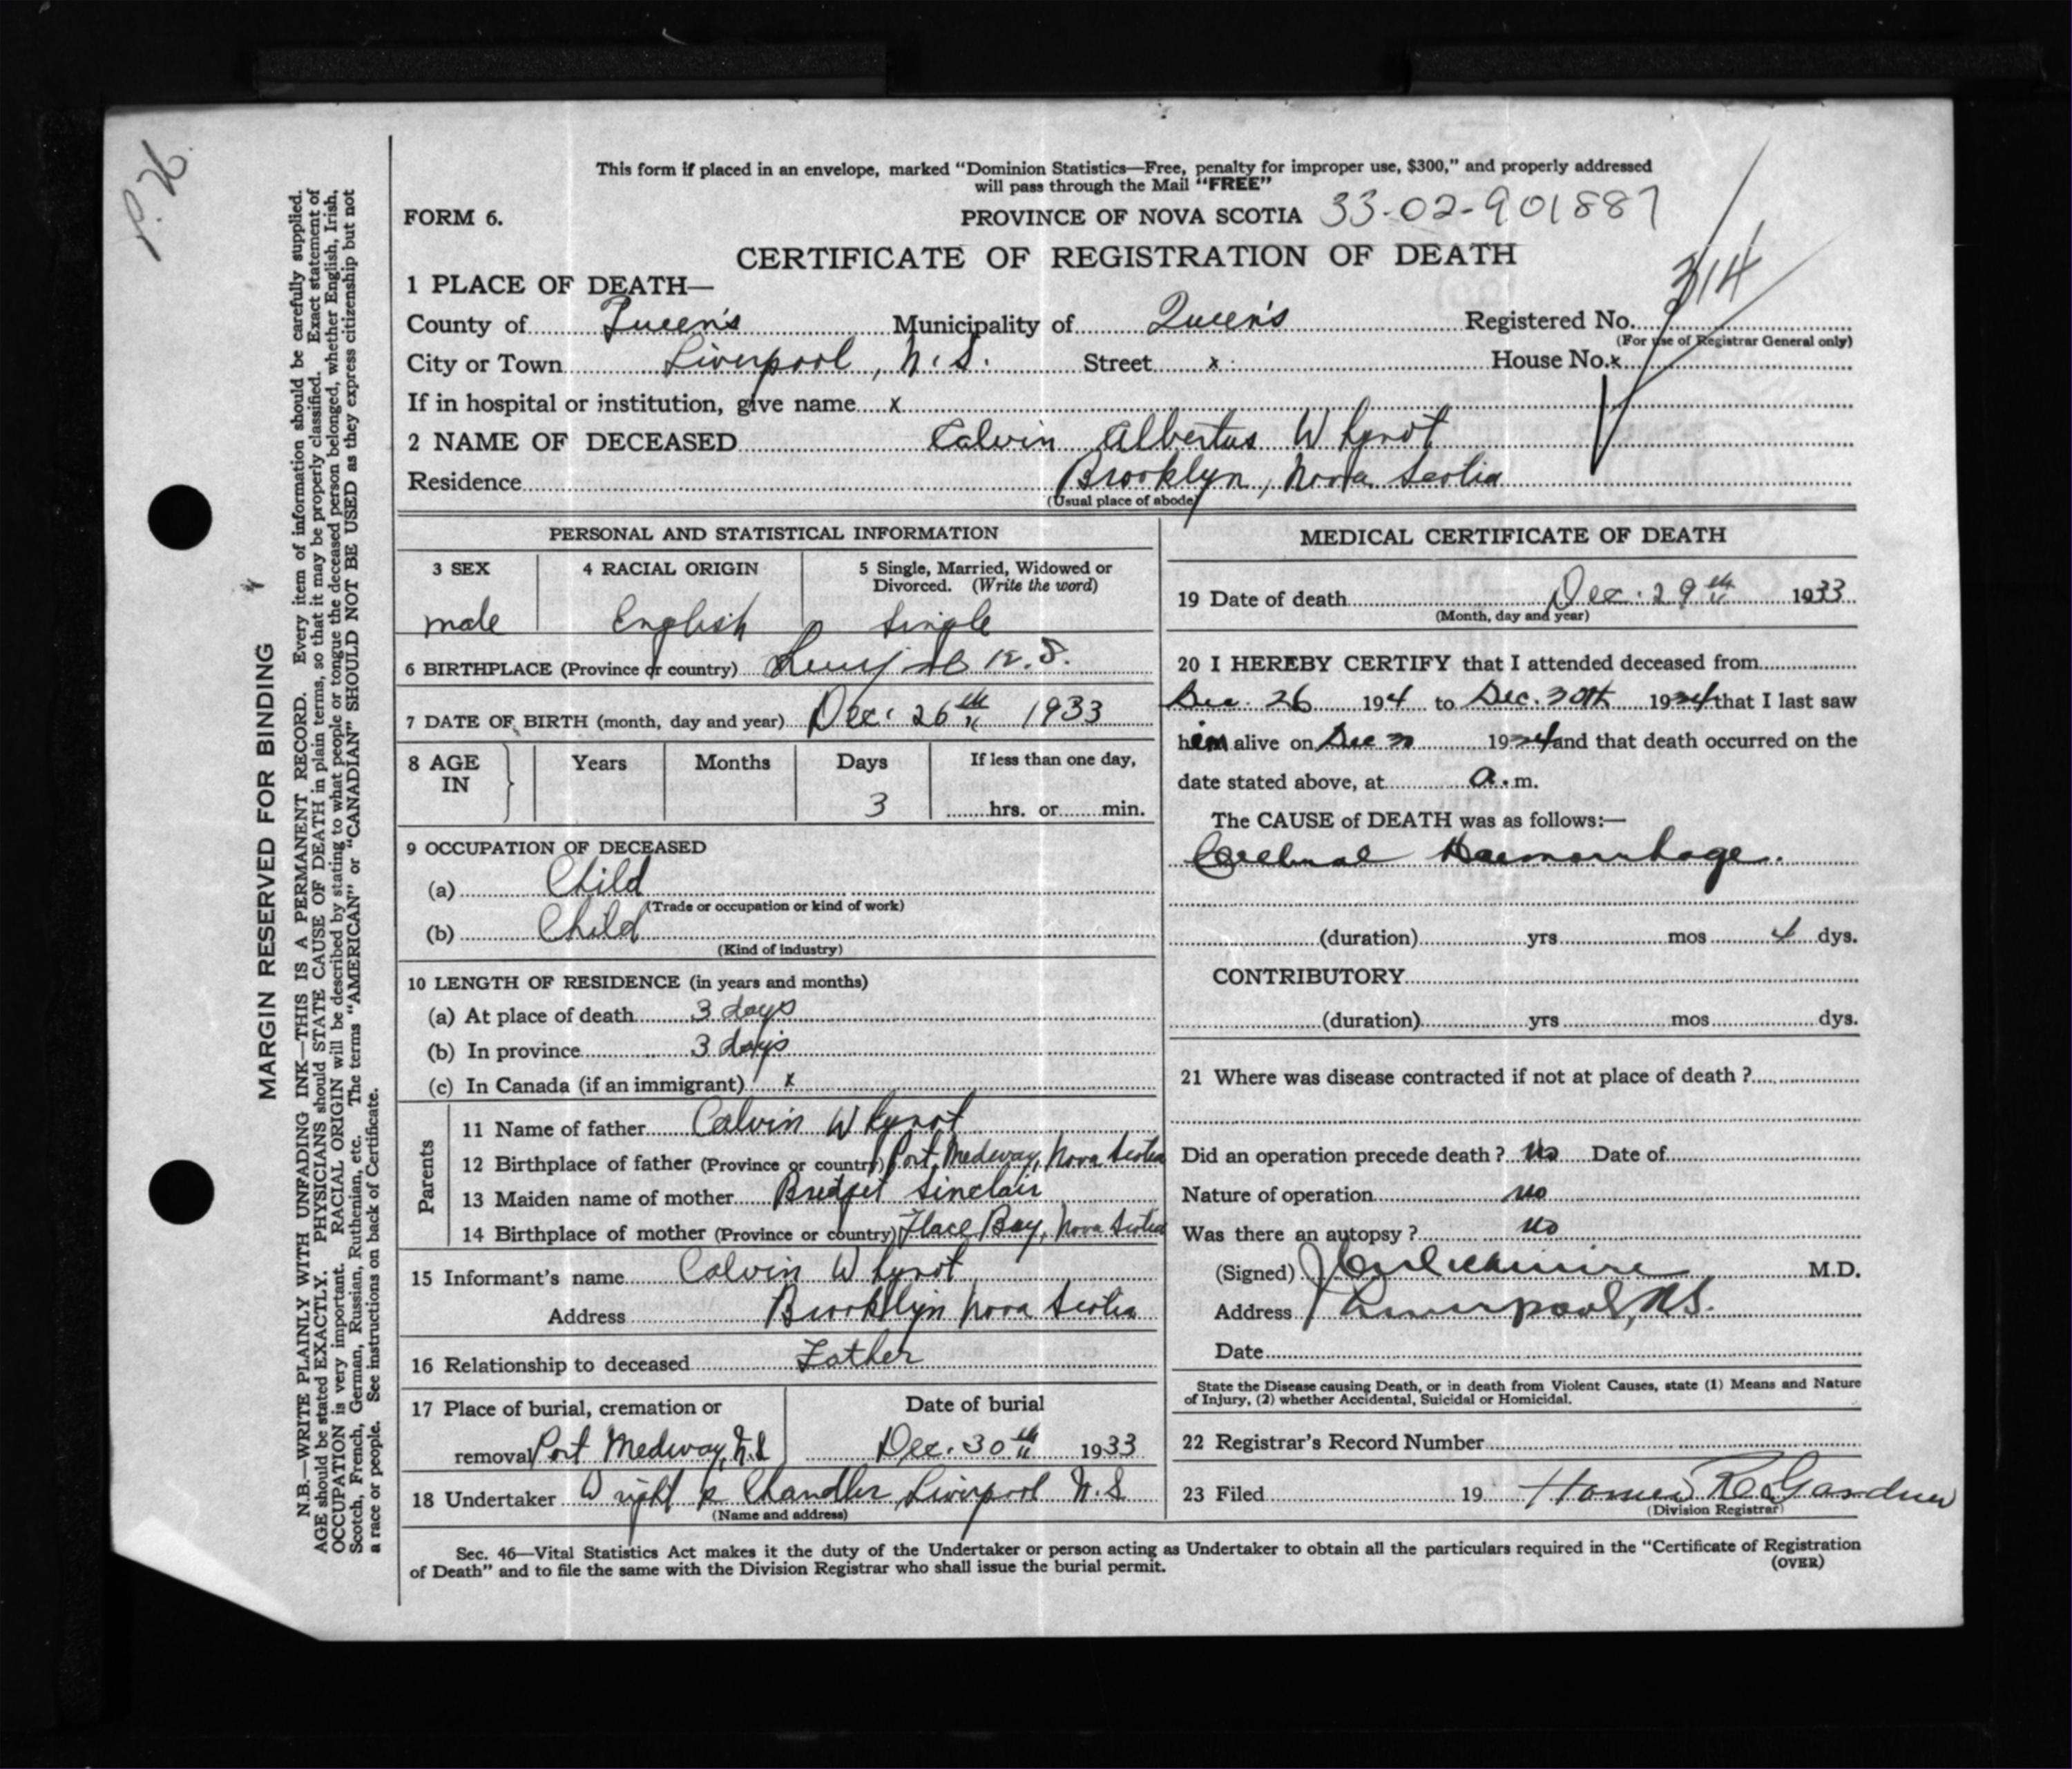 P. H.
MARGIN RESERVED FOR BINDING
N.B.—WRITE PLAINLY WITH UNFADING INK—THIS IS A PERMANENT RECORD. Every item of information should be carefully supplied.
AGE should be stated EXACTLY. PHYSICIANS should STATE CAUSE OF DEATH in plain terms, so that it may be properly classified. Exact statement of
OCCUPATION is very important. RACIAL ORIGIN will be described by stating to what people or tongue the deceased person belonged, whether English, Irish,
Scotch, French, German, Russian, Ruthenian, etc. The terms "AMERICAN" or "CANADIAN" SHOULD NOT BE USED as they express citizenship but not
a race or people. See instructions on back of Certificate.
This form if placed in an envelope, marked "Dominion Statistics—Free, penalty for improper use, $300," and properly addressed
will pass through the Mail "FREE"
FORM 6. PROVINCE OF NOVA SCOTIA 33-02-901887
CERTIFICATE OF REGISTRATION OF DEATH
1 PLACE OF DEATH—
County of Queen's Municipality of Queen's Registered No. 314
(For use of Registrar General only)
City or Town Liverpool, N.S. Street x House No. x
If in hospital or institution, give name x
2 NAME OF DECEASED Calvin Albertus Whynot
Residence Brooklyn, Nova Scotia
(Usual place of abode)
PERSONAL AND STATISTICAL INFORMATION
3 SEX 4 RACIAL ORIGIN 5 Single, Married, Widowed or
Divorced. (Write the word)
male English Single
6 BIRTHPLACE (Province or country) N.S.
7 DATE OF BIRTH (month, day and year) Dec. 26th 1933
8 AGE IN Years Months Days If less than one day,
3 hrs. or min.
9 OCCUPATION OF DECEASED
(a) Child
(Trade or occupation or kind of work)
(b) Child
(Kind of industry)
10 LENGTH OF RESIDENCE (in years and months)
(a) At place of death 3 days
(b) In province 3 days
(c) In Canada (if an immigrant) x
Parents
11 Name of father Calvin Whynot
12 Birthplace of father (Province or country) Port Medway, Nova Scotia
13 Maiden name of mother Bridget Sinclair
14 Birthplace of mother (Province or country) Glace Bay, Nova Scotia
15 Informant's name Calvin Whynot
Address Brooklyn Nova Scotia
16 Relationship to deceased Father
17 Place of burial, cremation or Date of burial
removal Port Medway, N.S Dec. 30th 1933
18 Undertaker Wright & Chandler Liverpool N.S
(Name and address)
MEDICAL CERTIFICATE OF DEATH
19 Date of death Dec. 29th 1933
(Month, day and year)
20 I HEREBY CERTIFY that I attended deceased from
Dec. 26 194 to Dec. 30th 1934 that I last saw
him alive on Dec 1934 and that death occurred on the
date stated above, at a.m.
The CAUSE of DEATH was as follows:—
Cerebral Haemorrhage.
(duration) yrs mos 4 dys.
CONTRIBUTORY
(duration) yrs mos dys.
21 Where was disease contracted if not at place of death ?
Did an operation precede death ? No Date of
Nature of operation no
Was there an autopsy ? no
(Signed) M.D.
Address Liverpool, N.S.
Date
State the Disease causing Death, or in death from Violent Causes, state (1) Means and Nature
of Injury, (2) whether Accidental, Suicidal or Homicidal.
22 Registrar's Record Number
23 Filed 19 Homer R. Gardner
(Division Registrar)
Sec. 46—Vital Statistics Act makes it the duty of the Undertaker or person acting as Undertaker to obtain all the particulars required in the "Certificate of Registration
of Death" and to file the same with the Division Registrar who shall issue the burial permit.
(OVER)